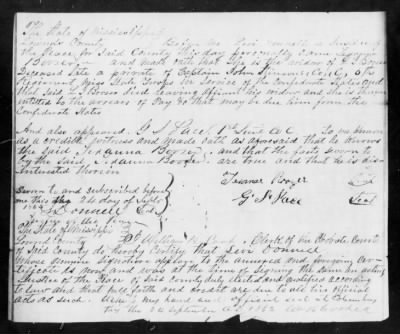 The State of Mississippi
Lowndes County
Before me Levi Donnell a Justice of
the Peace for Said County this day personally came
Boozer and made oath that She is the widow of L S Boozer
Deceased late a private of Captain John Co G, the
Regiment Miss State Troops in Service of the Confederate States and
that Said L S Boozer died leaving affiant his widow and she is therefore
entitled to the arrears of Pay &c that may be due him from the
Confederate States
And also appeared G S Pace 1st Lieut &c To me known
as a credible witness and made oath as aforesaid that he knows
the Said Boozer and that the facts sworn to
by the Said Boozer are true and that he is dis
interested therein
Sworn to and subscribed before
me this the 24 day of Sept
1862
Donnell
Boozer Seal
G. S. Pace Seal
The State of Mississippi
Lowndes County
I William Clerk of the Probate Court
of Said County do hereby Certify that Levi Donnell
whose genuine signature appears to the annexed and foregoing Cer-
tificate is now and was at the time of Signing the Same an acting
Justice of the Peace of Said County duly elected and qualified according
to Law and that full faith and credit are due to all his Official
acts as such. Given under my hand and official seal at Columbus
the 24 September 1862